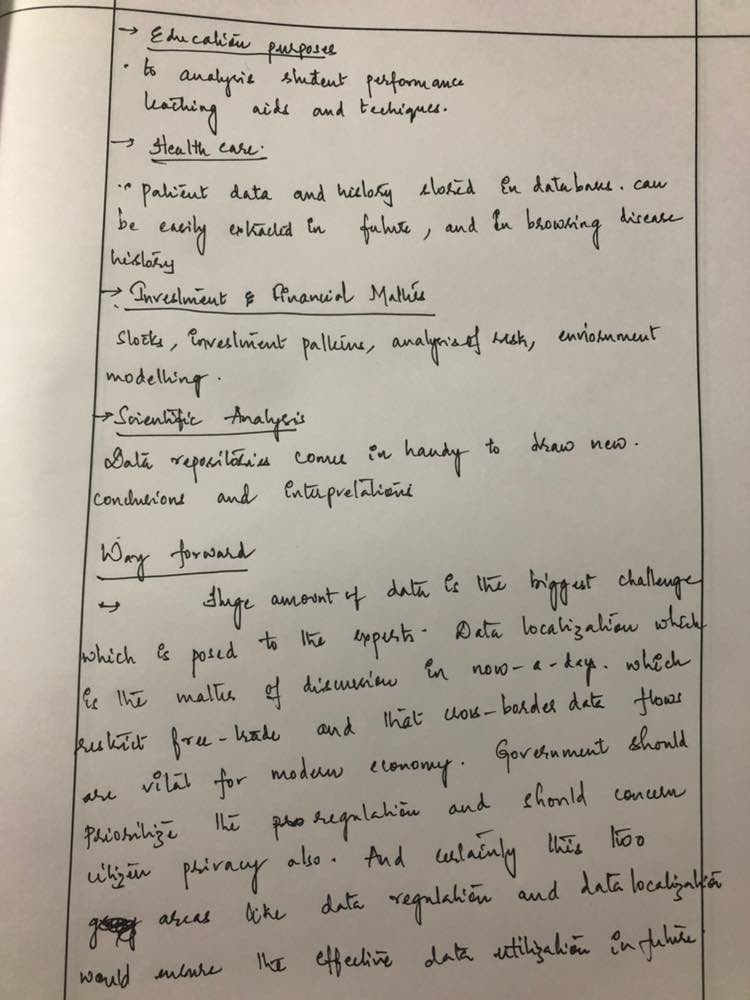 → Education purposes
· to analysis student performance
teaching aids and techiques.
→ Health care.
·· patient data and history stored in database. can
be easily extracted in future, and in browsing disease
history
→ Investment & Financial Mathes
Stocks, investment patterns, analysis of risk, enviornment
modelling.
→ Scientific Analysis
Data repositories comes in handy to draw new.
conclusions and interpretations
Way forward
↪ Huge amount of data is the biggest challenge
which is posed to the experts. Data localization which
is the matter of discussion in now-a-days. which
restrict free-trade and that cross-border data flows
are vital for modern economy. Government should
Prioritize the regulation and should concern
citizen privacy also. And certainly this two
areas like data regulation and data localization
would ensure the effective data utilization in future